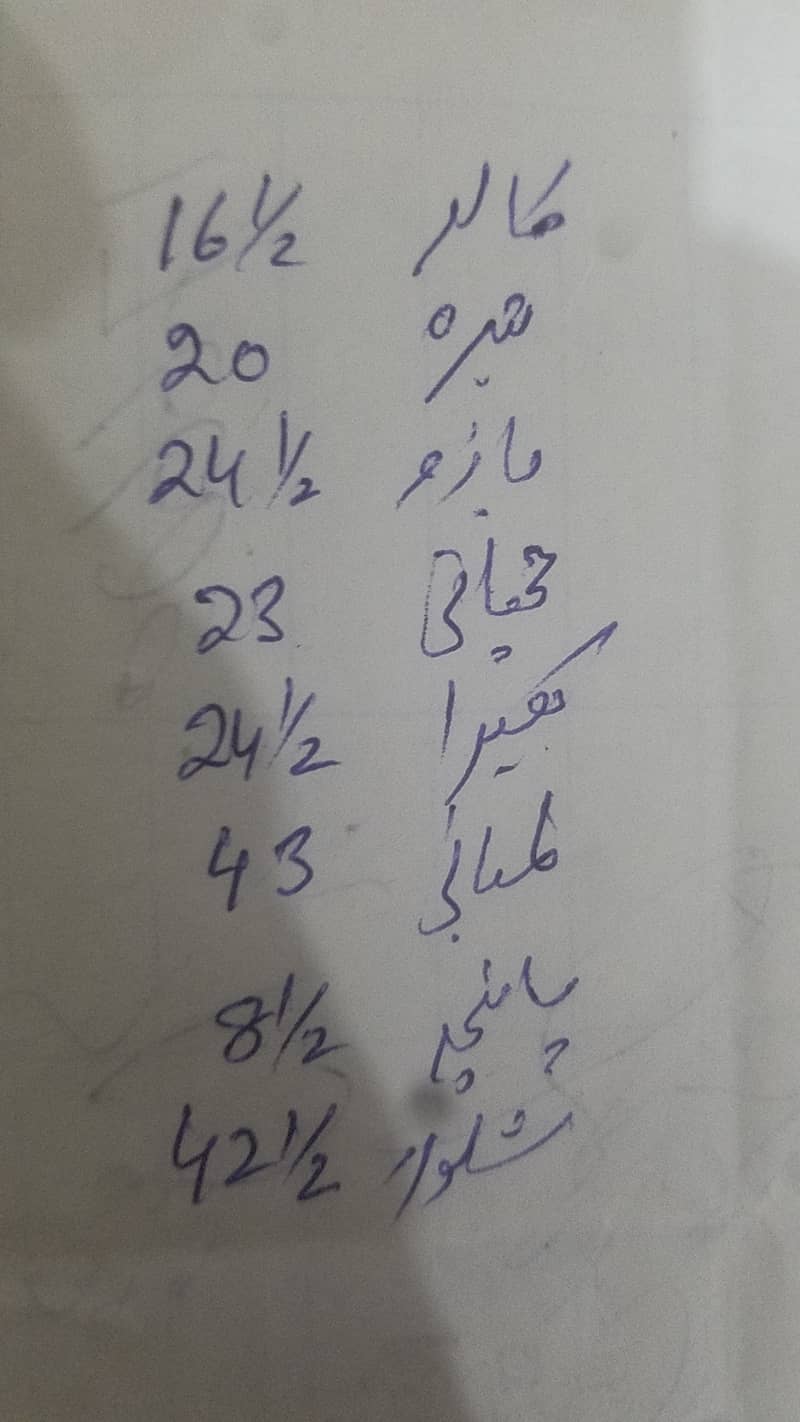 کالر 16 1/2
تیرہ 20
بازو 24 1/2
چھاتی 23
گھیرا 24 1/2
لمبائی 43
پانچہ 8 1/2
شلوار 42 1/2